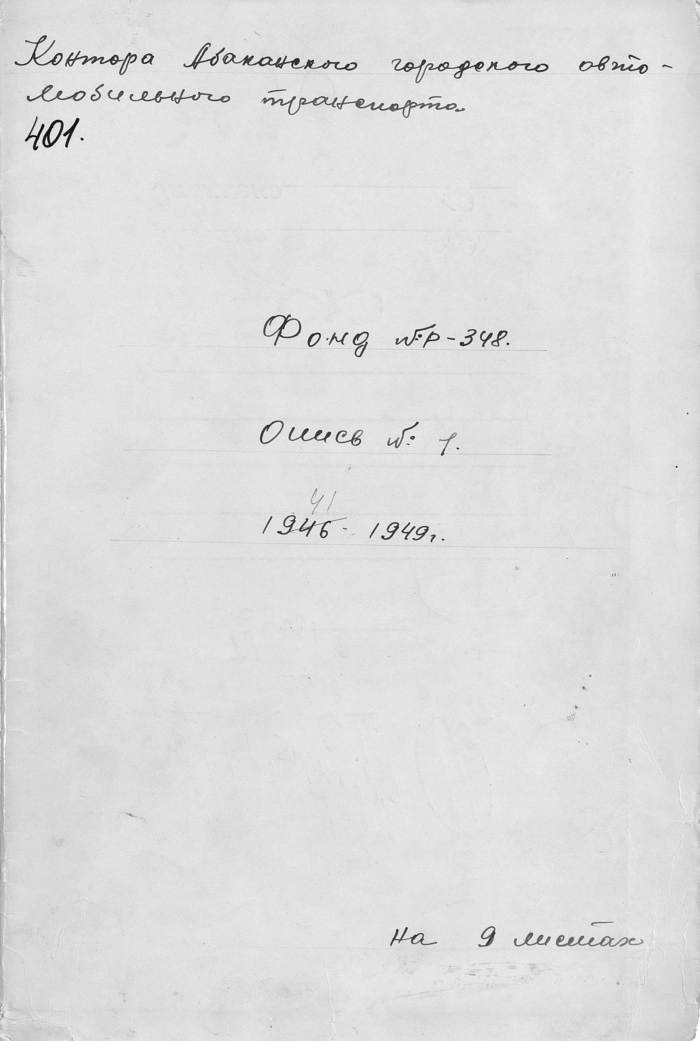 Контора Абаканского городского авто-
мобильного транспорта
401.
Фонд №Р-348.
Опись № 1.
41
1946 - 1949г.
на 9 листах